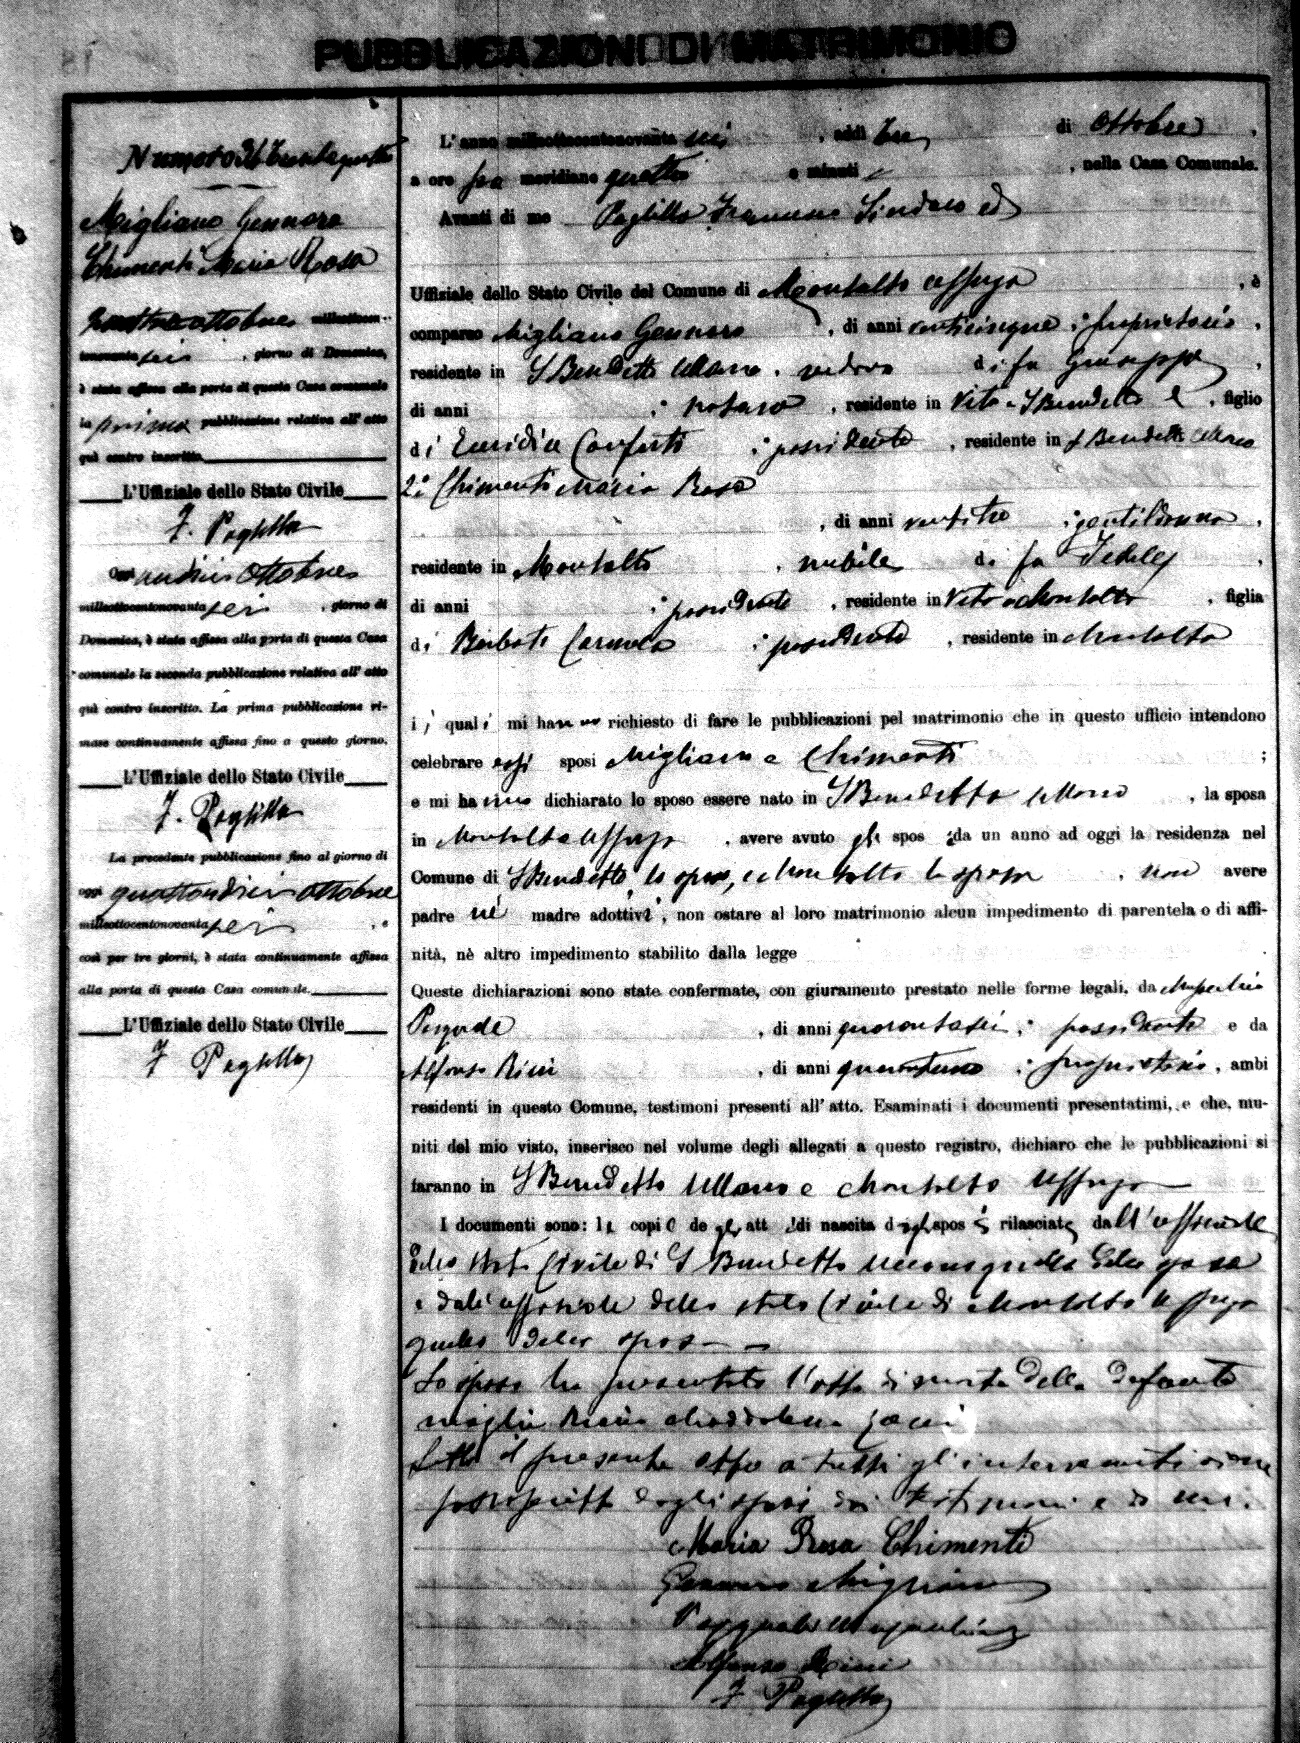 PUBBLICAZIONI DI MATRIMONIO
Numero 34 Trentaquattro
Migliano Gennaro
Chimenti Maria Rosa
quattro ottobre millottocen-
tonovanta sei, giorno di Domenica,
è stata affissa alla porta di questa Casa comunale
la prima pubblicazione relativa all' atto
quì contro inscritto.
L'Uffiziale dello Stato Civile
F. Paglilla
Oggi undici Ottobre
millottocentonovanta sei, giorno di
Domenica, è stata affissa alla porta di questa Casa
comunale la seconda pubblicazione relativa all' atto
quì contro inscritto. La prima pubblicazione ri-
mase continuamente affissa fino a questo giorno.
L'Uffiziale dello Stato Civile
F. Paglilla
La precedente pubblicazione fino al giorno di
oggi quattordici ottobre
millottocentonovanta sei, e
così per tre giorni, è stata continuamente affissa
alla porta di questa Casa comunale.
L'Uffiziale dello Stato Civile
F Paglilla
L' anno millottocentonovanta sei, addì tre di Ottobre,
a ore meridiane quattro e minuti, nella Casa Comunale.
Avanti di me Paglilla Francesco Sindaco ed
Uffiziale dello Stato Civile del Comune di Montalto Uffugo, è
comparso Migliano Gennaro, di anni venticinque, proprietario,
residente in S Benedetto Ullano, vedovo di fu Giuseppe,
di anni ; notaro, residente in Vita a S Benedetto U, figlio
di Euridice Conforti ; possidente, residente in S Benedetto Ullano
2° Chimenti Maria Rosa
, di anni ventitre ; gentildonna,
residente in Montalto, nubile di fu Fedele,
di anni ; possidente, residente in Vita a Montalto, figlia
di Barbati Carmela ; possidente, residente in Montalto
i quali mi hanno richiesto di fare le pubblicazioni pel matrimonio che in questo ufficio intendono
celebrare essi sposi Migliano e Chimenti ;
e mi hanno dichiarato lo sposo essere nato in S Benedetto Ullano, la sposa
in Montalto Uffugo, avere avuto gli sposi da un anno ad oggi la residenza nel
Comune di S Benedetto lo sposo, e Montalto la sposa, non avere
padre né madre adottivi, non ostare al loro matrimonio alcun impedimento di parentela o di affi-
nità, nè altro impedimento stabilito dalla legge
Queste dichiarazioni sono state confermate, con giuramento prestato nelle forme legali, da
Pasquale, di anni quarantasei ; possidente e da
Alfonso Rini, di anni quarantuno ; proprietario, ambi
residenti in questo Comune, testimoni presenti all' atto. Esaminati i documenti presentatimi, e che, mu-
niti del mio visto, inserisco nel volume degli allegati a questo registro, dichiaro che le pubblicazioni si
faranno in S Benedetto Ullano e Montalto Uffugo
I documenti sono: le copie degli atti di nascita degli sposi rilasciate dall' uffiziale
dello Stato Civile di S Benedetto Ullano quella dello sposo
e dall' uffiziale dello stato Civile di Montalto Uffugo
quella della sposa
Lo sposo ha presentato l'atto di morte della defunta
moglie Maddalena
Letto il presente atto a tutti gl' intervenuti viene
sottoscritto dagli sposi dai testimoni e da me.
Maria Rosa Chimenti
Gennaro Migliano
Pasquale
Alfonso Rini
F Paglilla